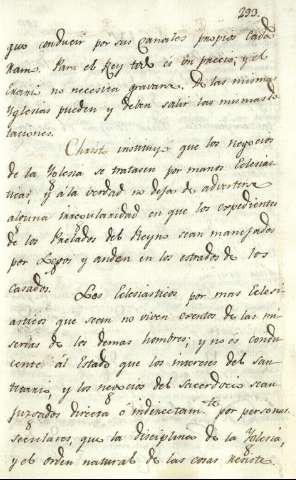 293.
que conducir por sus Canales propios cada
Ram. Para el Rey todo es un precio; y el
Erario no necesita gravarse. De las mismas
Yglesias pueden y deben salir las mismas
Christo instituyó que los negocios
de la Yglesia se tratasen por manos Eclesias
ticas; y á la verdad no deja de advertirse
alguna irregularidad en que los expedientes
de los Prelados del Reyno sean manejados
por Legos y anden en los estrados de los
casados.
Los Eclesiasticos por mas Eclesi
asticos que sean no viven exentos de las mi
serias de los demas hombres; y no es condu
cente al Estado que los intereses del san
tuario, y los negocios del sacerdocio sean
juzgados directa ó indirectam.te por personas
seculares, que la disciplina de la Yglesia,
y el orden natural de las cosas resiste.